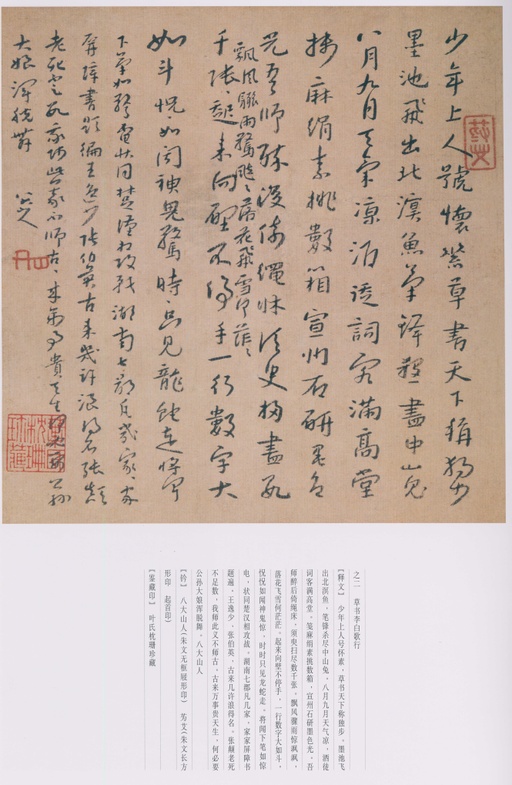 少年上人號懷素草書天下稱獨步
墨池飛出北溟魚筆鋒殺盡中山兔
八月九月天氣凉酒徒詞客滿高堂
牋麻絹素排數箱宣州石研墨色
光吾師醉後倚繩牀須臾掃盡數
飄風驟雨驚颯〻落花飛雪何茫〻
千張〻起來向壁不停手一行數字大
如斗怳〻如聞神鬼驚時〻只見龍蛇走將聞
下筆如驚電狀同楚漢相攻戰湖南七郡凡幾家〻家
屏障書題遍王逸少張伯英古來幾許浪得名張顛
老死不足數我師此義不師古〻來萬事貴天生何必要公孫
大娘渾脱舞 八大山人
之二 草书李白歌行
【释文】 少年上人号怀素,草书天下称独步。墨池飞
出北溟鱼,笔锋杀尽中山兔。八月九月天气凉,酒徒
词客满高堂。笺麻绢素摆数箱,宣州石研墨色光。吾
师醉后倚绳床,须臾扫尽数千张。飘风骤雨惊飒飒,
落花飞雪何茫茫。起来向壁不停手,一行数字大如斗。
怳怳如闻神鬼惊,时时只见龙蛇走。将闻下笔如惊
电,状同楚汉相攻战。湖南七郡凡几家,家家屏障书
题遍。王逸少,张伯英,古来几许浪得名。张颠老死
不足数,我师此义不师古。古来万事贵天生,何必要
公孙大娘浑脱舞。八大山人
【钤】 八大山人(朱文无框屐形印) 艿艾(朱文长方
形印 起首印)
【鉴藏印】 叶氏枕珊珍藏